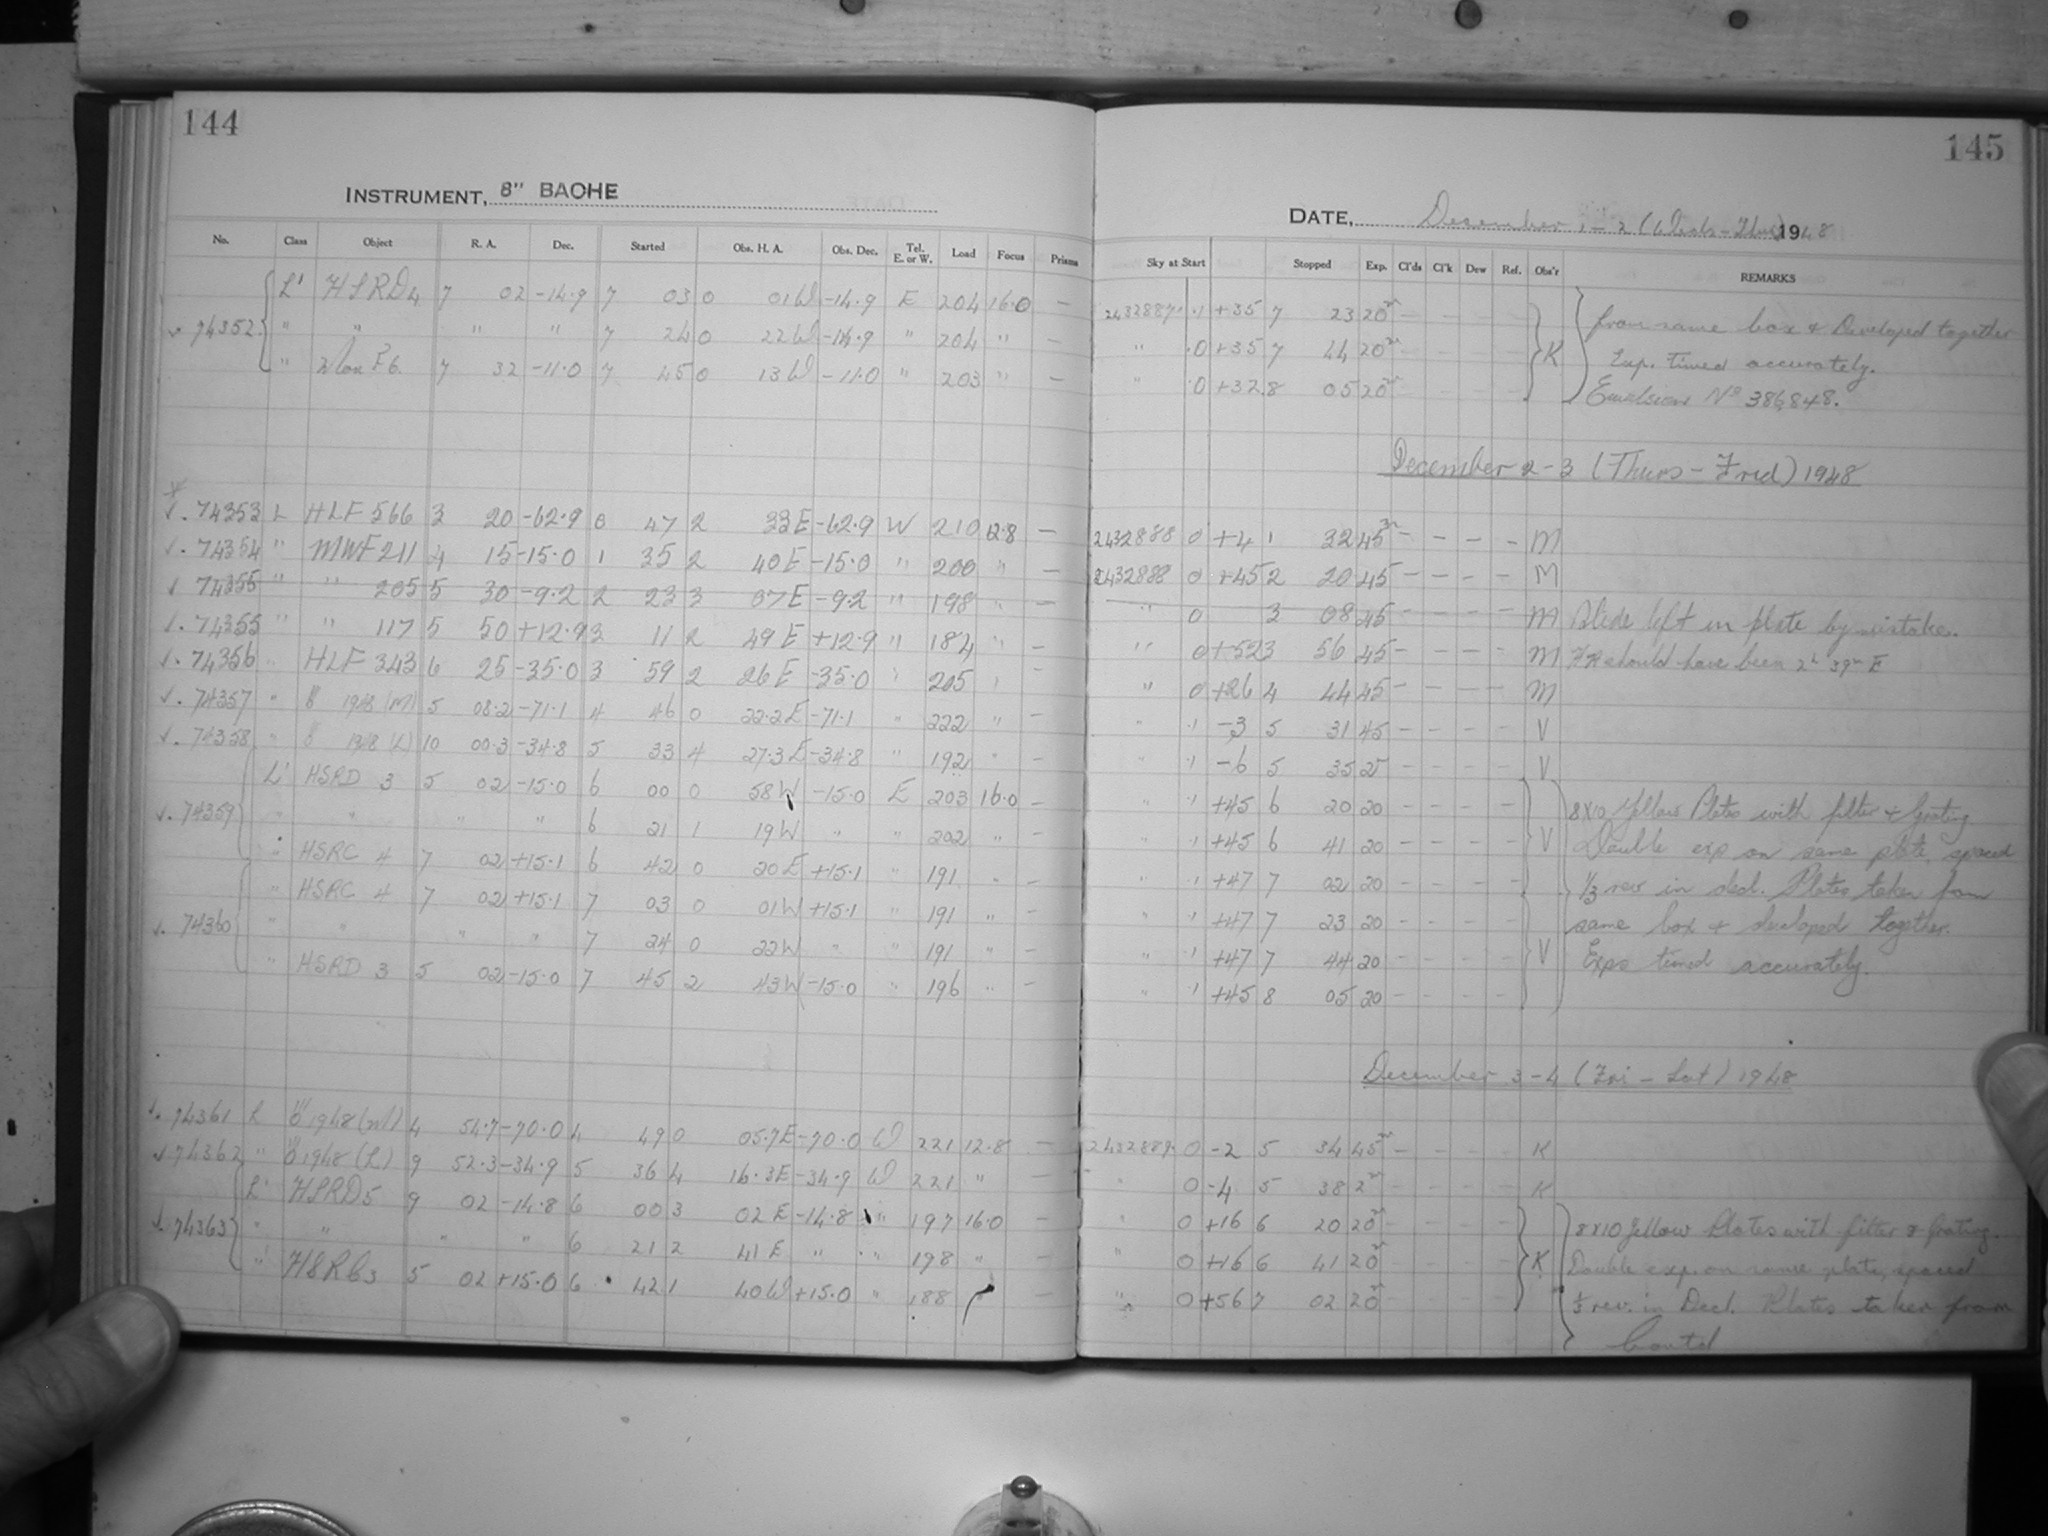 144
INSTRUMENT, 8" BACHE
No. Class Object R. A. Dec. Started Obs. H. A. Obs. Dec. Tel. E. or W. Load Focus Prisms
L' HSRD4 7 02 -14.9 7 03 0 01W -14.9 E 204 16.0 —
74352 " " " " 7 24 0 22W -14.9 " 204 " —
" F6. 7 32 -11.0 7 45 0 13W -11.0 " 203 " —
√. 74353 L HLF 566 3 20 -62.9 0 47 2 33E -62.9 W 210 12.8 —
√. 74354 " MWF 211 4 15 -15.0 1 35 2 40E -15.0 " 200 " —
√ 74355 " " 205 5 30 -9.2 2 23 3 07E -9.2 " 198 " —
√. 74355 " " 117 5 50 +12.9 3 11 2 49E +12.9 " 184 " —
√. 74356 " HLF 343 6 25 -35.0 3 59 2 26E -35.0 " 205 " —
√. 74357 " 1948 (M) 5 08.2 -71.1 4 46 0 22.2E -71.1 " 222 " —
√. 74358 " 1948 (L) 10 00.3 -34.8 5 33 4 27.3E -34.8 " 192 " —
L' HSRD 3 5 02 -15.0 6 00 0 58W -15.0 E 203 16.0 —
√. 74359 " " " " 6 21 1 19W " " 202 " —
" HSRC 4 7 02 +15.1 6 42 0 20E +15.1 " 191 " —
" HSRC 4 7 02 +15.1 7 03 0 01W +15.1 " 191 " —
√. 74360 " " " " 7 24 0 22W " " 191 " —
" HSRD 3 5 02 -15.0 7 45 2 43W -15.0 " 196 " —
√. 74361 L 1948 (M) 4 54.7 -70.0 4 49 0 05.7E -70.0 W 221 12.8 —
√ 74362 " 1948 (L) 9 52.3 -34.9 5 36 4 16.3E -34.9 W 221 " —
L' HSRD5 9 02 -14.8 6 00 3 02E -14.8 " 197 16.0 —
√. 74363 " " " " 6 21 2 41E " " 198 " —
" HSRC3 5 02 +15.0 6 42 1 40W +15.0 " 188 "
145
DATE, December 1-2 (Weds-Thurs) 1948
Sky at Start Stopped Exp. Cl'ds Cl'k Dew Ref. Obs'r REMARKS
2432887 .1 +35 7 23 20m — — — — from same box & Developed together
" .0 +35 7 44 20m — — — — K Exp. timed accurately.
" .0 +32 8 05 20m — — — — Emulsion No 386848.
December 2-3 (Thurs-Frid) 1948
2432888 0 +4 1 32 45m — — — — M
2432888 0 +45 2 20 45 — — — — M
" 0 3 08 45 — — — — M Slide left in plate by mistake.
" 0 +52 3 56 45 — — — — M HA should have been 2h 39m E
" 0 +26 4 44 45 — — — — M
" .1 -3 5 31 45 — — — — V
" .1 -6 5 35 2 — — — — V
" .1 +45 6 20 20 — — — — 8x10 Yellow Plates with filter & Grating
" .1 +45 6 41 20 — — — — V Double exp on same plate, spaced
" .1 +47 7 02 20 — — — — 1/3 rev in decl. Plates taken from
" .1 +47 7 23 20 — — — — same box & developed together.
" .1 +47 7 44 20 — — — — V Exps timed accurately.
" .1 +45 8 05 20 — — — —
December 3-4 (Fri-Sat) 1948
2432889 0 -2 5 34 45m — — — — K
" 0 -4 5 38 2m — — — — K
" 0 +16 6 20 20m — — — — 8x10 Yellow Plates with filter & Grating.
" 0 +16 6 41 20m — — — — K Double exp. on same plate, spaced
" 0 +56 7 02 20m — — — — 1/3 rev. in Decl. Plates taken from
Contd